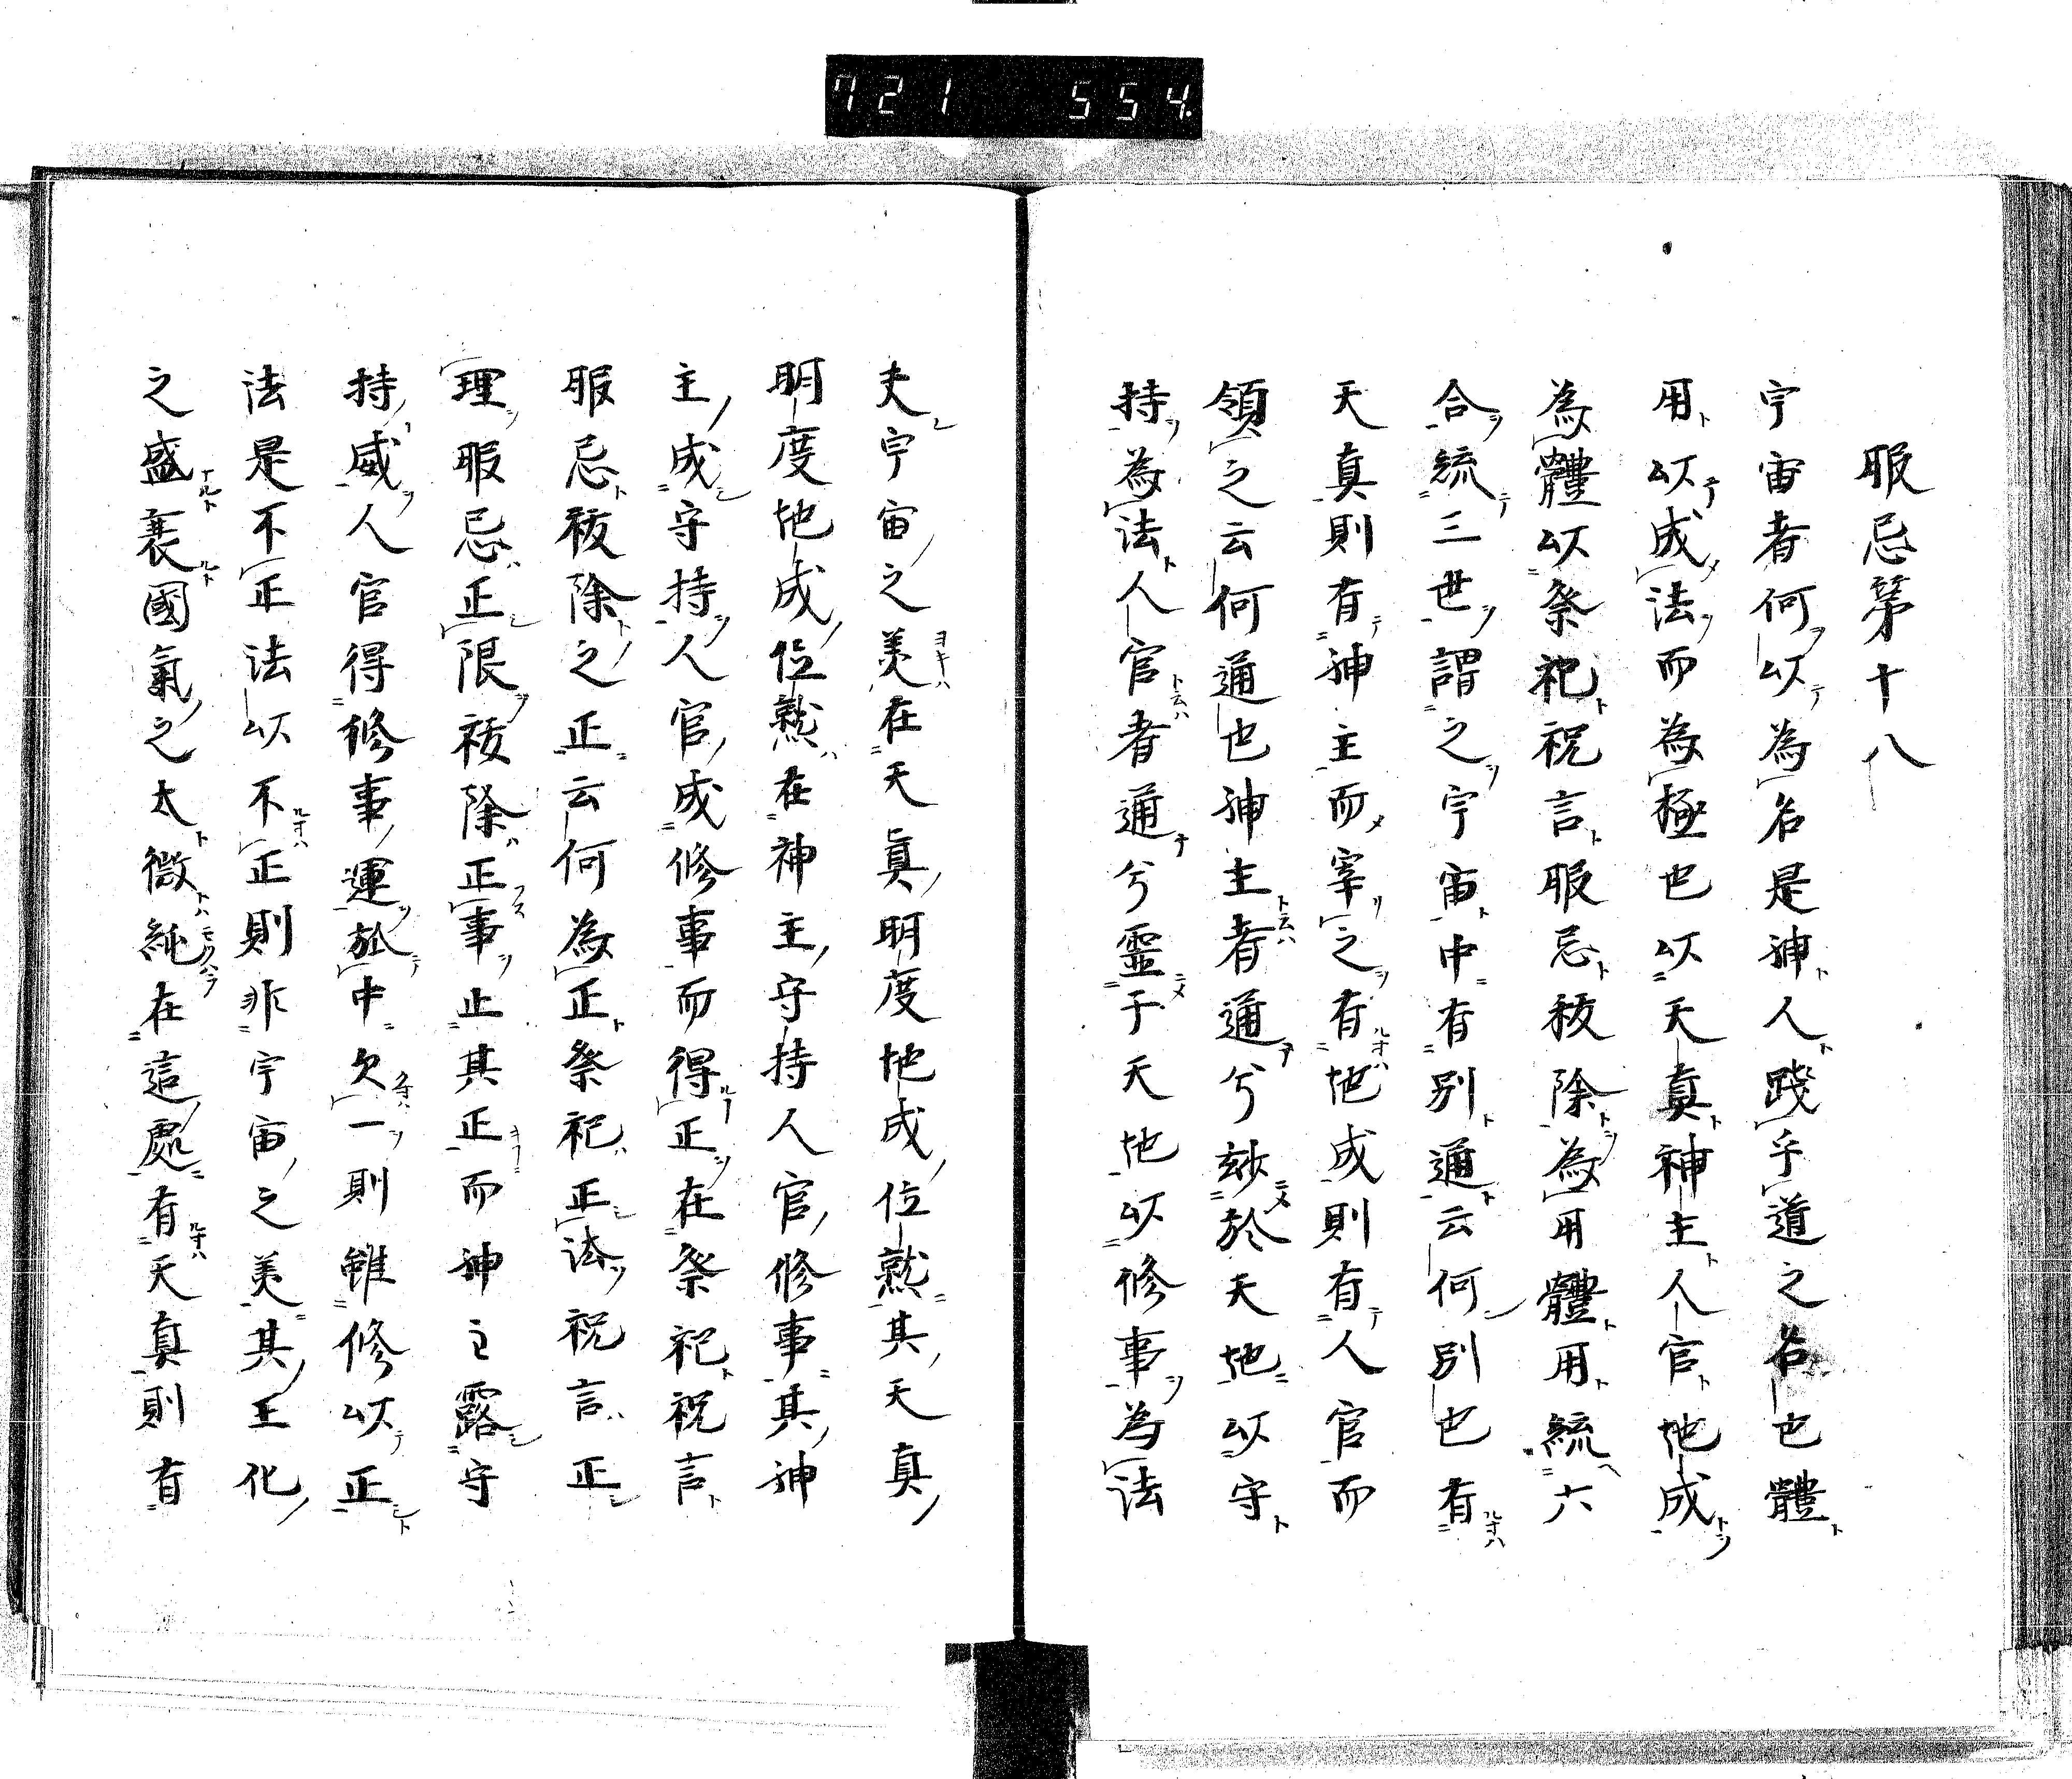 721 554
服忌第十八
宇宙者何以為名是神人踐乎道之名也體
用以成法而為極也以天真神主人官地成
為體以祭祀祝言服忌祓除為用體用統六
合統三世謂之宇宙中有別通云何別也有
天真則有神主而宰之有地成則有人官而
領之云何通也神主者通兮玅於天地以守
持為法人官者通兮靈于天地以修事為法
夫宇宙之美在天真明度地成位就其天真
明度地成位就在神主守持人官修事其神
主成守持人官成修事而得正在祭祀祝言
服忌祓除之正云何為正祭祀正法祝言正
理服忌正限祓除正事止其正而神主露守
持威人官得修事運於中欠一則雖修以正
法是不正法以不正則非宇宙之美其王化
之盛衰國氣之太微純在這處有天真則有